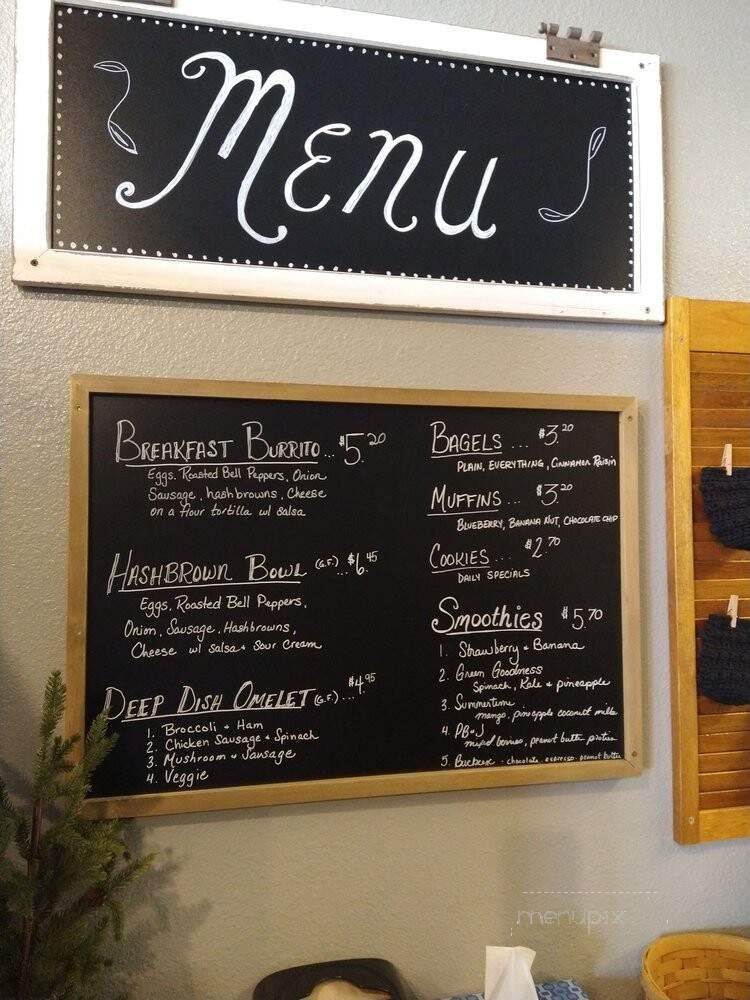 Menu
BREAKFAST BURRITO... $5.20
Eggs, Roasted Bell Peppers, Onion
Sausage, hashbrowns, Cheese
on a flour tortilla w/ salsa
HASHBROWN BOWL (G.F.) ... $6.45
Eggs, Roasted Bell Peppers,
Onion, Sausage, Hashbrowns,
Cheese w/ salsa + Sour Cream
DEEP DISH OMELET (G.F.) ... $4.95
1. Broccoli + Ham
2. Chicken Sausage + Spinach
3. Mushroom + Sausage
4. Veggie
BAGELS ... $3.20
PLAIN, EVERYTHING, Cinnamon Raisin
MUFFINS ... $3.20
BLUEBERRY, BANANA NUT, CHOCOLATE CHIP
COOKIES ... $2.70
DAILY SPECIALS
Smoothies $5.70
1. Strawberry + Banana
2. Green Goodness
Spinach, Kale + pineapple
3. Summertime
mango, pineapple coconut milk
4. PB+J
mixed berries, peanut butter protein
5. Buckeye - chocolate, espresso, peanut butter
menupix